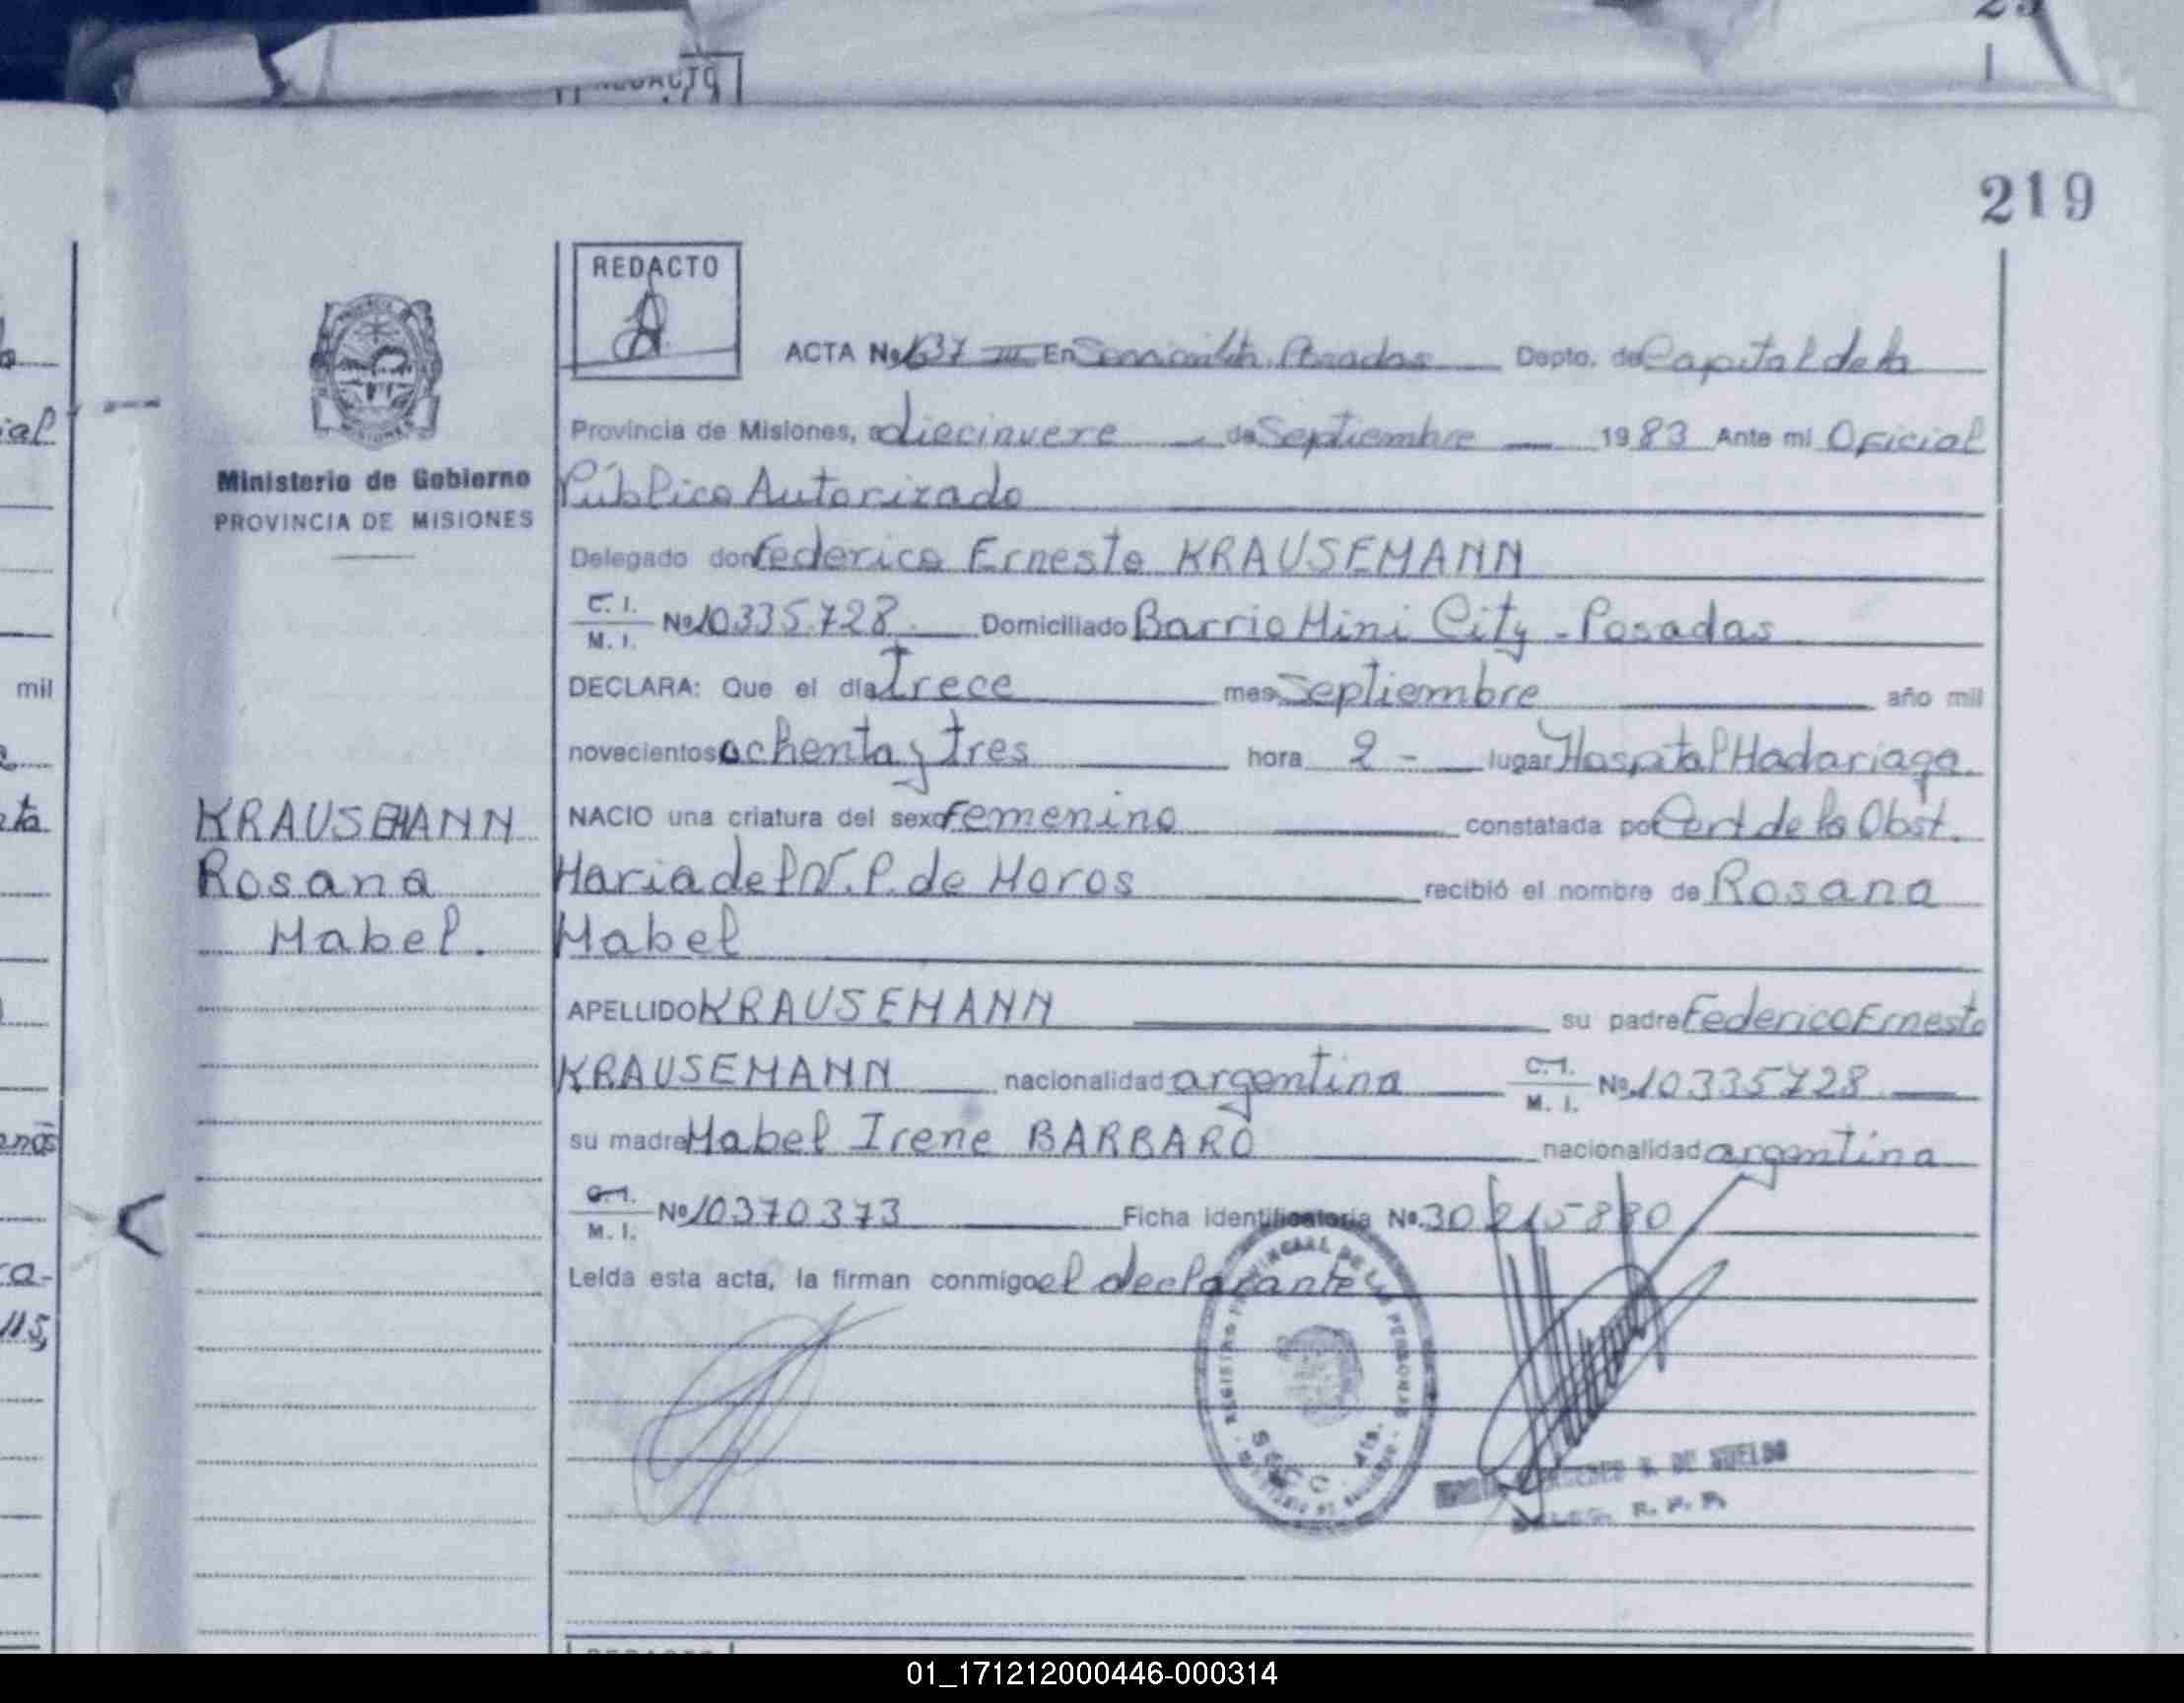 219
REDACTO
ACTA No 637 III En Sección 4ta. Posadas Depto. de Capital de la
Provincia de Misiones, a diecinueve de Septiembre 1983 Ante mi Oficial
Ministerio de Gobierno
PROVINCIA DE MISIONES
Público Autorizado
Delegado don Federico Ernesto KRAUSEMANN
C. I.
M. I. No 10335.728 Domiciliado Barrio Mini City - Posadas
DECLARA: Que el día Trece mes Septiembre año mil
novecientos ochenta y tres hora 2 - lugar Hospital Madariaga.
KRAUSEMANN
NACIO una criatura del sexo Femenino constatada por Cert de la Obst.
Rosana
Maria del V. P. de Moros recibió el nombre de Rosana
Mabel.
Mabel
APELLIDO KRAUSEMANN su padre Federico Ernesto
KRAUSEMANN nacionalidad argentina C. I. M. I. No 10335728
su madre Mabel Irene BARBARO nacionalidad argentina
C. I.
M. I. No 10370373 Ficha identificatoria No. 30
Leída esta acta, la firman conmigo el declarante
REGISTRO PROVINCIAL DE LAS PERSONAS
SECC. 4ta.
DE SUELDO
DELEG. R. P. P.
01_171212000446-000314